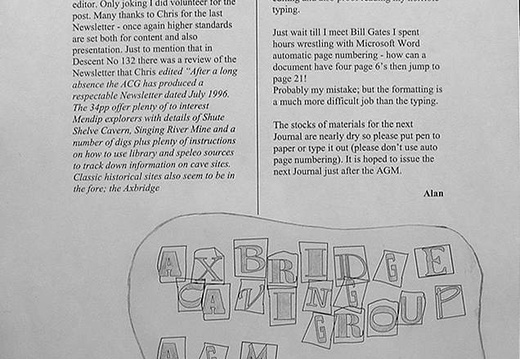 editor. Only joking I did volunteer for the
post. Many thanks to Chris for the last
Newsletter - once again higher standards
are set both for content and also
presentation. Just to mention that in
Descent No 132 there was a review of the
Newsletter that Chris edited "After a long
absence the ACG has produced a
respectable Newsletter dated July 1996.
The 34pp offer plenty of to interest
Mendip explorers with details of Shute
Shelve Cavern, Singing River Mine and a
number of digs plus plenty of instructions
on how to use library and speleo sources
to track down information on cave sites.
Classic historical sites also seem to be in
the fore; the Axbridge
typing.
Just wait till I meet Bill Gates I spent
hours wrestling with Microsoft Word
automatic page numbering - how can a
document have four page 6's then jump to
page 21!
Probably my mistake; but the formatting is
a much more difficult job than the typing.
The stocks of materials for the next
Journal are nearly dry so please put pen to
paper or type it out (please don't use auto
page numbering). It is hoped to issue the
next Journal just after the AGM.
Alan
AXBRIDGE
CAVING
GROUP
AGM